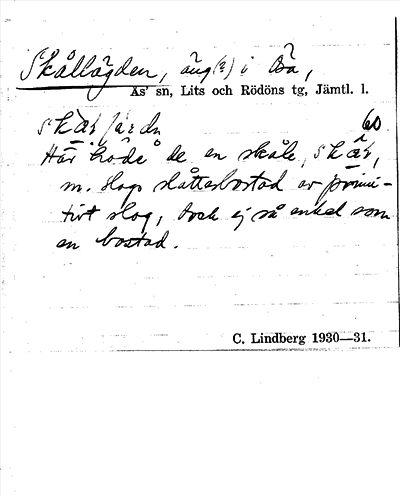 Skållägden, äng(?) i Ösa,
Ås' sn, Lits och Rödöns tg, Jämtl. l.
60
Här hade de en skåle,
m. slags slåtterbostad av primi-
tivt slag, dock ej så enkel som
en bostad.
C. Lindberg 1930—31.